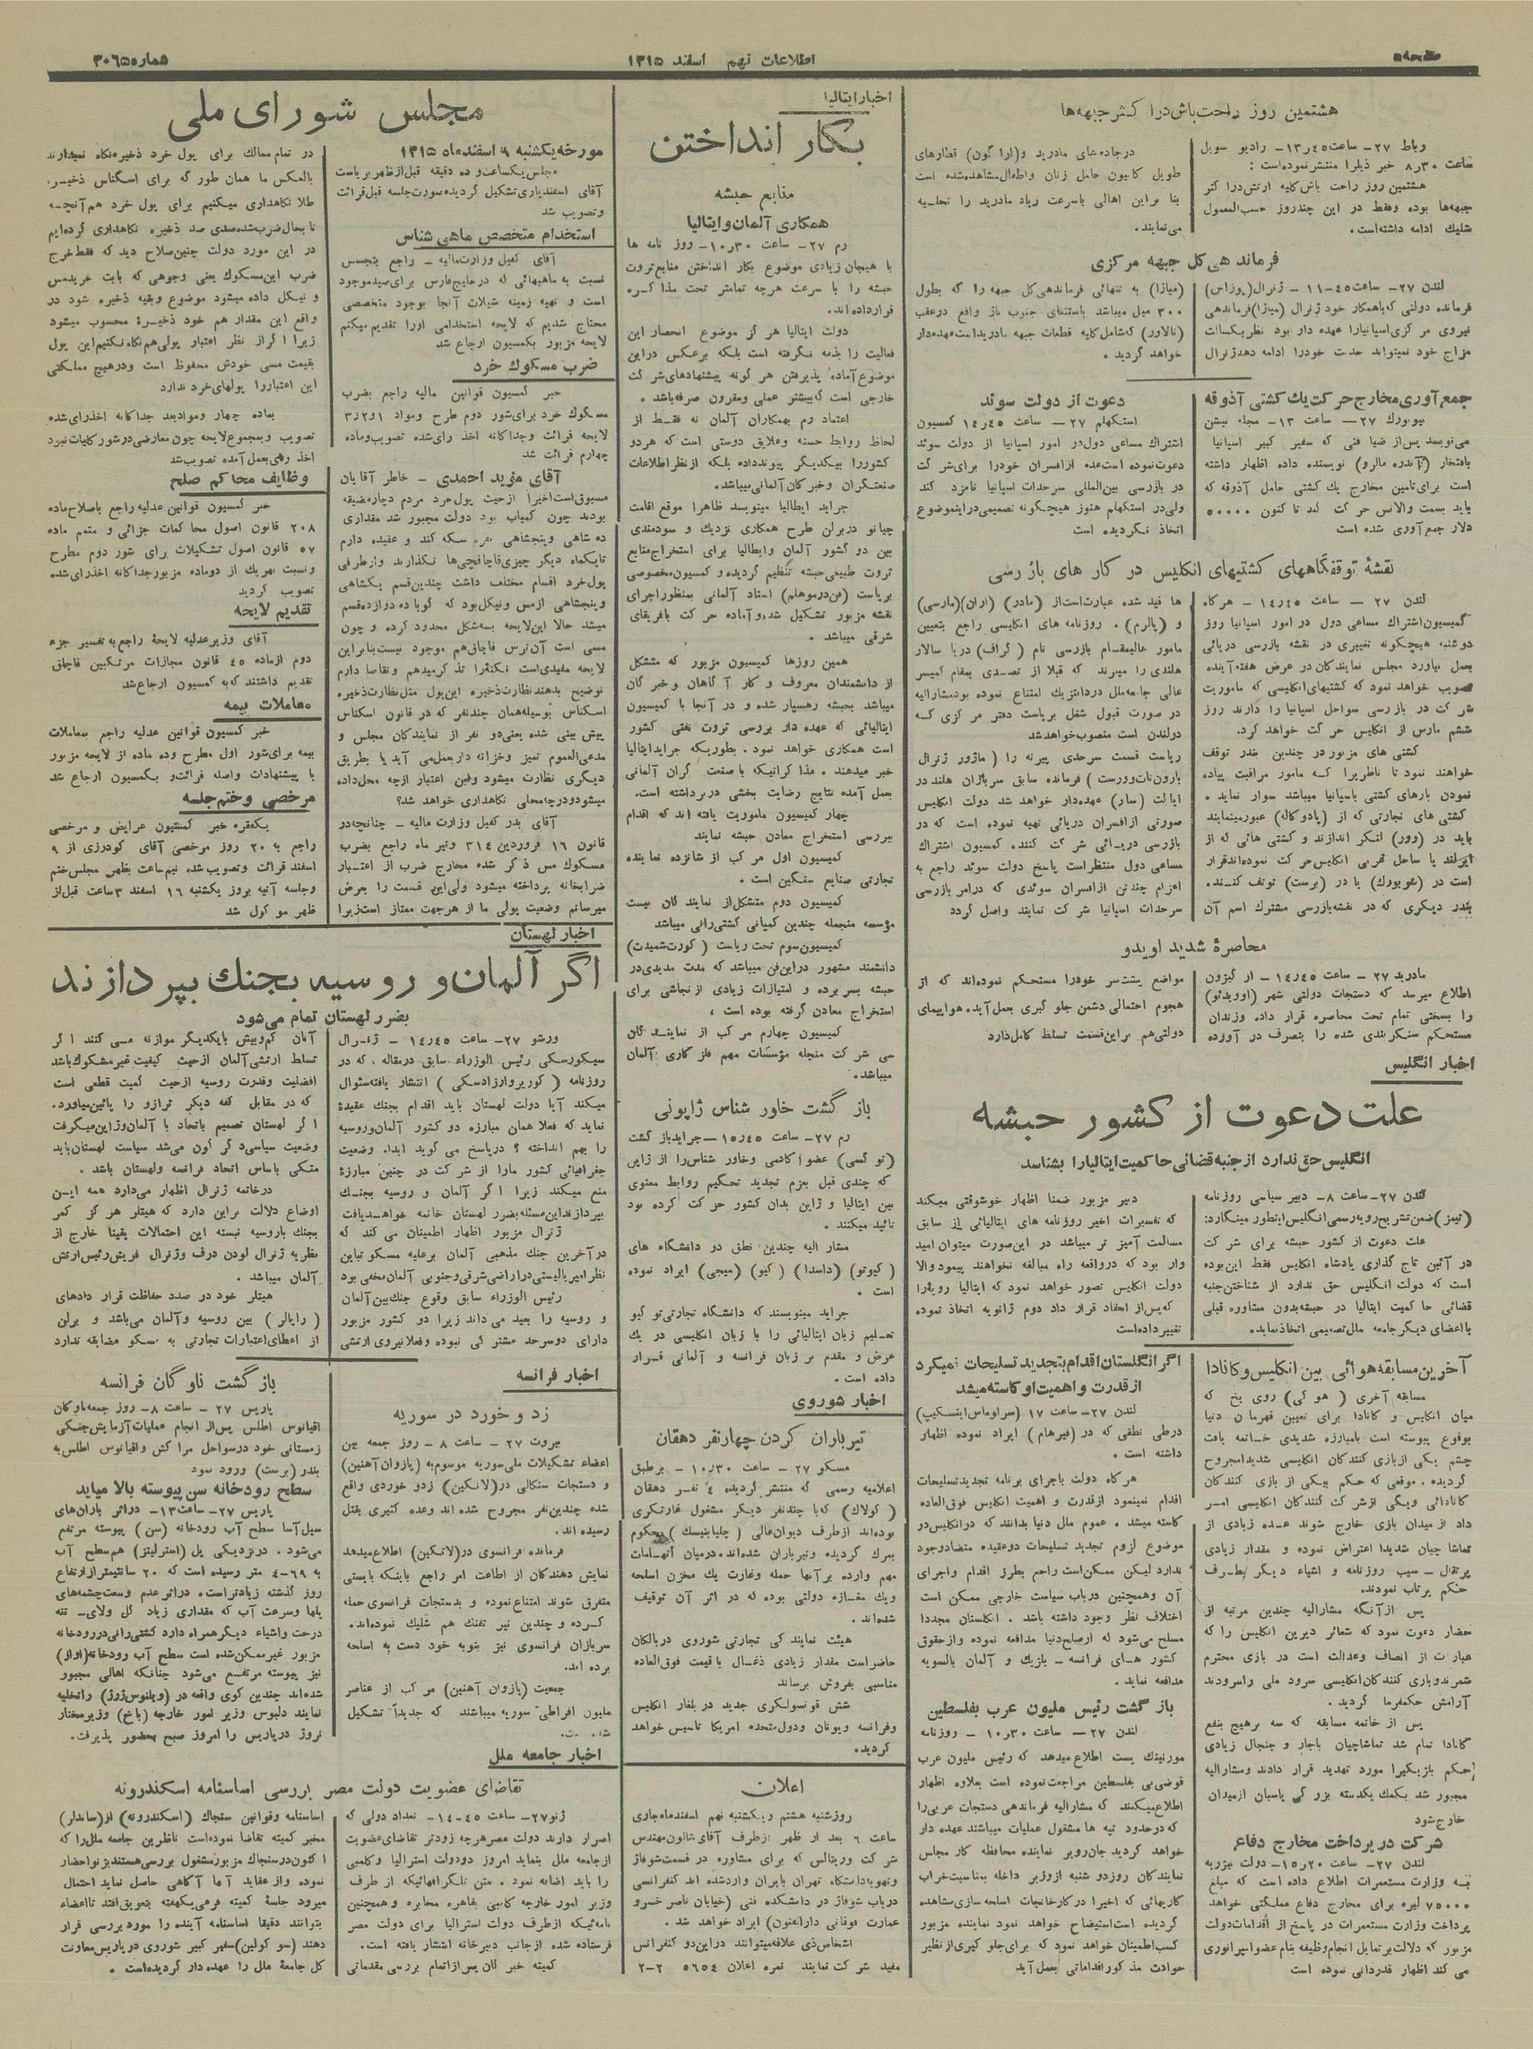 صفحه۵
اطلاعات نهم اسفند ۱۳۱۵
شماره۳۰۶۵
هشتمین روز راحت‌باش‌در اکثر جبهه‌ها
رباط ۲۷- ساعت۱۳٫۴۵- رادیو سویل
ساعت ۸٫۳۰ خبر ذیلرا منتشر نموده‌است :
هشتمین روز راحت باش کلیه ارتش‌در اکثر
جبهه‌ها بوده وفقط در این چندروز حسب‌المعمول
شلیك ادامه داشته‌است.
درجاده‌های مادرید و(ارا گون) قطارهای
طویل کامیون حامل زنان واطفال‌مشاهده‌شده است
بنا براین اهالی باسرعت زیاد مادرید را تخلیه
می‌نمایند.
فرماندهی کل جبهه مرکزی
لندن ۲۷- ساعت۱۱-۴۵- ژنرال(پوزاس)
فرمانده دولتی که‌باهمکار خود ژنرال (میاژا)فرماندهی
نیروی مرکزی‌اسپانیارا عهده دار بود نظر بکسالت
مزاج خود نمیتواند خدمت خودرا ادامه دهدژنرال
(میاژا) به تنهائی فرماندهی‌کل جبهه را که بطول
۳۰۰ میل میباشد باستثنای جنوب باز واقع دوعقب
(تالاور) که‌شامل‌کلیه قطعات جبهه مادریداست‌عهده‌دار
خواهد گردید .
جمع آوری مخارج حرکت یك کشتی آذوقه
نیویورك ۲۷- ساعت ۱۳- مجله نیشن
می‌نویسد پس‌از ضیا فتی که سفیر کبیر اسپانیا
بافتخار (آندره مالرو) نویسنده داده اظهار داشته
است برای‌تامین مخارج یك کشتی حامل آذوقه که
باید بسمت والانس حرکت کند تا کنون ۵۰۰۰۰
دلار جمع‌آوری شده است
دعوت از دولت سوئد
استکهلم ۲۷- ساعت ۱۴٫۴۵ کمسیون
اشتراك مساعی دول‌در امور اسپانیا از دولت سوئد
دعوت‌نموده است‌عده ازافسران خودرا برای‌شرکت
در بازرسی بین‌المللی سرحدات اسپانیا نامزد کند
ولی‌در استکهلم هنوز هیچگونه تصمیمی دراینموضوع
اتخاذ نگردیده است
نقشهٔ توقفگاههای کشتیهای انگلیس در کار های بازرسی
لندن ۲۷ - ساعت ۱۴٫۴۵ - هرگاه
کمیسیون‌اشتراك مساعی دول در امور اسپانیا روز
دوشنبه هیچگونه تغییری در نقشه بازرسی دریائی
بعمل نیاورد مجلس نمایندگان در عرض هفته‌آینده
تصویب خواهد نمود که کشتیهای‌انگلیسی که ماموریت
شرکت در بازرسی سواحل اسپانیا را دارند روز
ششم مارس از انگلیس حرکت خواهد کرد.
کشتی های مزبور در چندین بندر توقف
خواهند نمود تا ناظر یرا که مامور مراقبت پیاده
نمودن بارهای کشتی باسپانیا میباشد سوار نماید .
کشتی های تجارتی که از (پادوکاله) عبورمینمایند
باید در (وور) لنگر اندازند و کشتی هائی که از
ایرلند یا ساحل غربی انگلیس‌حرکت نموده‌اندقرار
است در (مویورك) یا در (برست) توقف کنند.
بندر دیگری که در نقشه‌بازرسی مشترك اسم آن
ها قید شده عبارت‌است‌از (مادر) (اران)(مارسی)
و (پالرم) . روزنامه های انگلیسی راجع بتعیین
مامور عالیمقام بازرسی نام (گراف) دریا سالار
هلندی را میبرند که قبلا از تصدی بمقام کمیسر
عالی جامعه‌ملل دردانتزیك امتناع نموده بودمشارالیه
در صورت قبول شغل بریاست دفتر مرکزی که
درلندن است منصوب خواهد شد
ریاست قسمت سرحدی پیرنه را (ماژور ژنرال
بارون‌نات‌وورست) فرمانده سابق سربازان هلند در
ایالت (سار) عهده‌دار خواهد شد دولت انگلیس
صورتی ازافسران دریائی تهیه نموده است که در
بازرسی دریائی شرکت کنند. کمسیون اشتراك
مساعی دول منتظراست پاسخ دولت سوئد راجع به
اعزام چندتن ازافسران سوئدی که درامر بازرسی
سرحدات اسپانیا شرکت نمایند واصل گردد
محاصرهٔ شدید اویدو
مادرید ۲۷ - ساعت ۱۴٫۴۵ - از لیزون
اطلاع میرسد که دستجات دولتی شهر (اوویدئو)
را بسختی تمام تحت محاصره قرار داد. وزندان
مستحکم سنگربندی شده را بتصرف در آورده
مواضع بیشتر خودرا مستحکم نموده‌اند که از
هجوم احتمالی دشمن جلو گیری بعمل‌آید.هواپیمای
دولتی‌هم براین‌قسمت تسلط کامل‌دارد
اخبار انگلیس
علت دعوت از کشور حبشه
انگلیس حق ندارد از جنبه قضائی حاکمیت ایتالیارا بشناسد
لندن ۲۷- ساعت ۸- دبیر سیاسی روزنامه
(تیمز)ضمن‌تشریح رویه رسمی‌انگلیس‌اینطور مینگارد:
علت دعوت از کشور حبشه برای شرکت
در آئین تاج گذاری پادشاه انگلیس فقط این‌بوده
است که‌دولت انگلیس حق ندارد از شناختن‌جنبه
قضائی حاکمیت ایتالیا در حبشه‌بدون مشاوره قبلی
بااعضای دیگر جامعه ملل‌تصمیمی اتخاذ نماید.
دبیر مزبور ضمنا اظهار خوشوقتی میکند
که تفسیرات اخیر روزنامه های ایتالیائی از سابق
مسالمت آمیز تر میباشد در این‌صورت میتوان امید
وار بود که درواقعه راه مبالغه نخواهند پیمود والا
دولت انگلیس تصور خواهد نمود که ایتالیا رویه‌را
که‌پس‌از انعقاد قرار داد دوم ژانویه اتخاذ نموده.
تغییر داده‌است
آخرین مسابقه هوائی بین انگلیس و کانادا
مسابقه آخری ( هوکی) روی یخ که
میان انگلیس و کانادا برای تعیین قهرمان دنیا
بوقوع پیوسته است بامبارزه شدیدی خاتمه یافت
چشم یکی ازبازی کنندگان انگلیسی شدیدامجروح
گردیده. موقعی که حکم بیکی از بازی کنندگان
کانادائی ویکی ازشرکت کنندگان انگلیسی امر
داد ازمیدان بازی خارج شوند عده زیادی از
تماشا چیان شدیدا اعتراض نموده و مقدار زیادی
پرتقال - سیب روزنامه و اشیاء دیگر بطرف
حکم پرتاب نمودند.
پس ازآنکه مشارالیه چندین مرتبه از
حضار دعوت نمود که شعائر دیرین انگلیس را که
عبارت از انصاف وعدالت است در بازی محترم
شمرندوبازی کنندگان‌انگلیسی سرود ملی راسرودند
آرامش حکمفرما گردید .
پس از خاتمه مسابقه که سه برهیچ بنفع
کانادا تمام شد تماشاچیان باجار و جنجال زیادی
حکم بازیگررا مورد تهدید قرار دادند ومشارالیه
مجبور شد بکمك یکدسته بزرگی پاسبان ازمیدان
خارج شود
شرکت در پرداخت مخارج دفاع
لندن ۲۷- ساعت ۱۵٫۲۰- دولت نیزریه
به وزارت مستعمرات اطلاع داده است که مبلغ
۷۵۰۰۰ لیره برای مخارج دفاع مملکتی خواهد
پرداخت وزارت مستعمرات در پاسخ از اقدامات‌دولت
مزبور که دلالت بر تمایل انجام‌وظیفه بنام عضوامپراتوری
می کند اظهار قدردانی نموده است
اگر انگلستان اقدام بتجدید تسلیحات نمیکرد
از قدرت و اهمیت او کاسته میشد
لندن ۲۷- ساعت ۱۷ (سرتوماس‌اینسکیپ)
درطی نطقی که در (فیرهام) ایراد نموده اظهار
داشته است .
هرگاه دولت باجرای برنامه تجدید تسلیحات
اقدام نمینمود ازقدرت و اهمیت انگلیس فوق‌العاده
کاسته میشد . عموم ملل دنیا بدانند که درانگلیس‌در
موضوع لزوم تجدید تسلیحات دوعقیده متضادوجود
ندارد لیکن ممکن‌است راجع بطرز اقدام واجرای
آن وهمچنین درباب سیاست خارجی ممکن است
اختلاف نظر وجود داشته باشد . انگلستان مجددا
مسلح می‌شود له ازصلح‌دنیا مدافعه نموده وازحقوق
کشور های فرانسه - بلژیك و آلمان بالسویه
مدافعه نماید .
باز گشت رئیس ملیون عرب بفلسطین
لندن ۲۷- ساعت ۱۰٫۳۰ - روزنامه
مورنینك پست اطلاع میدهد که رئیس ملیون عرب
قوضی‌بی بفلسطین مراجعت‌نموده است بعلاوه اظهار
اطلاع میکنند که مشارالیه فرماندهی دستجات عربی‌را
که درحدود تپه ها مشغول عملیات میباشند عهده دار
خواهد گردید جان‌روبر نماینده محافظه کار مجلس
نمایندگان روزدو شنبه ازوزیر داخله به‌مناسبت‌خراب
کاریهائی که اخیرا در کارخانجات اسلحه سازی‌مشاهده
گردیده است‌استیضاح خواهد نمود نماینده مزبور
کسب‌اطمینان خواهد نمود که برای‌جلو گیری‌ازنظیر
حوادث مذکور اقداماتی بعمل آید
اخبار ایتالیا
بکار انداختن
منابع حبشه
همکاری آلمان و ایتالیا
رم ۲۷- ساعت ۱۰٫۳۰- روز نامه ها
با هیجان زیادی موضوع بکار انداختن منابع‌ثروت
حبشه را با سرعت هرچه تمامتر تحت مذاکره
قرارداده‌اند.
دولت ایتالیا هرگز موضوع انحصار این
فعالیت را بذمه نگرفته است بلکه برعکس دراین
موضوع‌آماده پذیرفتن هر گونه پیشنهادهای‌شرکت
خارجی است که‌بیشتر عملی ومقرون صرفه‌باشد .
اعتماد رم بهمکاران آلمان نه فقط از
لحاظ روابط حسنه وعلایق دوستی است که هردو
کشوررا بیکدیگر پیوندداده بلکه ازنظر اطلاعات
صنعتگران و خبرگان آلمانی‌میباشد.
جراید ایطالیا مینویسد ظاهرا موقع اقامت
چیانو دربرلن طرح همکاری نزدیك و سودمندی
بین دو کشور آلمان وایطالیا برای استخراج‌منابع
ثروت طبیعی‌حبشه تنظیم گردیده و کمسیون‌مخصوصی
بریاست (فن‌درموهلم) استاد آلمانی بمنظور اجرای
نقشه مزبور تشکیل شده‌وآماده حرکت بافریقای
شرقی میباشد .
همین روزها کمیسیون مزبور که متشکل
از دانشمندان معروف و کار آگاهان و خبرگان
میباشد بحبشه رهسپار شده و در آنجا با کمیسیون
ایتالیائی که عهده دار بررسی ثروت نفتی کشور
است همکاری خواهد نمود . بطوریکه جرایدایتالیا
خبر میدهند . مذاکراتیکه باصنعت گران آلمانی
بعمل آمده نتایج رضایت بخشی دربرداشته است.
چهار کمیسیون ماموریت یافته اند که اقدام
ببررسی استخراج معادن حبشه نمایند
کمیسیون اول مرکب از شانزده نماینده
تجارتی صنایع سنگین است .
کمیسیون دوم متشکل‌از نمایندگان بیست
مؤسسه منجمله چندین کمپانی کشتی‌رانی میباشد
کمیسیون‌سوم تحت ریاست ( کورت‌شمیدت)
دانشمند مشهور دراین‌فن میباشد که مدت مدیدی‌در
حبشه بسر برده و امتیازات زیادی از نجاشی برای
استخراج معادن گرفته بوده است ،
کمیسیون چهارم مرکب از نمایندگان
سی شرکت منجمله مؤسسات مهم فلزکاری آلمان
میباشد.
باز گشت خاور شناس ژاپونی
رم ۲۷- ساعت ۱۵٫۴۵-جراید باز گشت
(توکسی) عضوآکادمی وخاور شناس‌را از ژاپن
که چندی قبل بعزم تجدید تحکیم روابط معنوی
بین ایتالیا و ژاپن بدان کشور حرکت کرده بود
تائید میکنند .
مشار الیه چندین نطق در دانشگاه های
( کیوتو) (داسدا) ( کیو) (میجی) ایراد نموده
است .
جراید مینویسند که دانشگاه تجارتی‌توکیو
تعلیم زبان ایتالیائی را با زبان انگلیسی در یك
عرض و مقدم بر زبان فرانسه و آلمانی قرار
داده است .
اخبار شوروی
تیرباران کردن چهارنفر دهقان
مسکو ۲۷ - ساعت ۱۰٫۳۰ - برطبق
اعلامیه رسمی که منتشر گردیده ٤ نفر دهقان
( کولاك) که‌با چندنفر دیگر مشغول غارتگری
بوده‌اند ازطرف دیوان‌عالی ( چلیابتیسك ) محکوم
بمرك گردیده وتیرباران شده‌اند. درمیان اتهامات
مهم وارده برآنها حمله وغارت یك مخزن اسلحه
ویك مغازه دولتی بوده که در اثر آن توقیف
شده‌اند .
هیئت نمایندگی تجارتی شوروی دربالکان
حاضر است مقدار زیادی ذغال با قیمت فوق‌العاده
مناسبی بفروش برساند
شش قونسولگری جدید در بلغار انگلیس
وفرانسه ویونان ودول‌متحده امریکا تاسیس خواهد
گردید.
اعلان
روزشنبه هشتم و یکشنبه نهم اسفندماه‌جاری
ساعت ٦ بعد از ظهر ازطرف آقای‌شالون‌مهندس
شرکت وریتالس که برای مشاوره در قسمت‌شوفاژ
وتهویه‌دانشگاه تهران بایران وارد شده اند کنفرانسی
درباب شوفاژ در دانشکده فنی (خیابان ناصر خسرو
عمارت فوقانی دارالفنون) ایراد خواهد شد .
اشخاص‌ذی علاقه‌میتوانند دراین‌دو کنفرانس
مفید شرکت نمایند نمره اعلان ۵۶۵۴ ۲-۲
مجلس شورای ملی
مورخه یکشنبه ۹ اسفندماه ۱۳۱۵
مجلس یکساعت‌و ده دقیقه قبل‌از ظهر بریاست
آقای اسفندیاری تشکیل گردیده‌صورت‌جلسه قبل‌قرائت
وتصویب شد
استخدام متخصص ماهی شناس
آقای کفیل وزارت‌مالیه - راجع بتجسس
نسبت به ماهیهائی که در خلیج‌فارس برای‌صید موجود
است و تهیه زمینه شیلات آنجا بوجود متخصصی
محتاج شدیم که لایحه استخدامی اورا تقدیم میکنم
لایحه مزبور بکمسیون ارجاع شد
ضرب مسکوك خرد
خبر کمسیون قوانین مالیه راجع بضرب
مسکوك خرد برای‌شور دوم طرح ومواد ۱و۲و۳
لایحه قرائت وجداگانه اخذ رای‌شده تصویب‌وماده
چهارم قرائت شد
آقای مؤید احمدی - خاطر آقایان
مسبوق است اخیرا ازحیث پول‌خرد مردم دچار مضیقه
بودند چون کمیاب بود دولت مجبور شد مقداری
ده شاهی وپنجشاهی نقره سکه کند و عقیده دارم
تایکماه دیگر چیزی‌قاچاقچی‌ها نگذارند وازطرفی
پول‌خرد اقسام مختلف داشت چندین‌قسم یکشاهی
وپنجشاهی ازمس ونیکل‌بود که گویا ده دوازده‌قسم
میشد حالا این‌لایحه بسه‌شکل محدود کرده و چون
مسی است آن‌ترس قاچاق‌هم موجود نیست‌بنابراین
لایحه مفیدی‌است تنکته‌را تذکرمیدهم وتقاضا دارم
توضیح بدهند نظارت‌ذخیره این‌پول مثل‌نظارت‌ذخیره
اسکناس بوسیله همان چندنفر که در قانون اسکناس
پیش بینی شده یعنی‌دو نفر از نمایندگان مجلس و
مدعی‌العموم تمیز وخزانه دار بعمل‌می آید یا بطریق
دیگری نظارت میشود وهمین اعتبار ازچه محل‌داده
میشود ودرچه محلی نگاهداری خواهد شد؟
آقای بدر کفیل وزارت مالیه - چنانچه‌در
قانون ۱۶ فروردین ۳۱۴ وتیر ماه راجع بضرب
مسکوك مس ذکر شده مخارج ضرب از اعتبار
ضرابخانه پرداخته میشود ولی‌این قسمت را بعرض
میرسانم وضعیت پولی ما از هرجهت ممتاز است‌زیرا
در تمام ممالك برای پول خرد ذخیره‌نگاه نمیدارند
بالعکس ما همان طور که برای اسکناس ذخیره
طلا نگاهداری میکنیم برای پول خرد هم آنچه
تا بحال ضرب‌شده‌صدی صد ذخیره نگاهداری کرده‌ایم
در این مورد دولت چنین‌صلاح دید که فقط‌خرج
ضرب این‌مسکوك یعنی وجوهی که بابت خرید مس
و نیکل داده میشود موضوع وبقیه ذخیره شود در
واقع این مقدار هم خود ذخیرهٔ محسوب میشود
زیرا اگر از نظر اعتبار پولی‌هم‌نگاه‌بکنیم‌این پول
بقیمت مسی خودش محفوظ است ودرهیچ مملکتی
این اعتباررا پولهای‌خرد ندارد
بماده چهار وموادبعد جداگانه اخذرای‌شده
تصویب وبمجموع‌لایحه چون معارضی‌در شور کلیات نبود
اخذ رای‌بعمل آمده تصویب شد
وظایف محاکم صلح
خبر کمسیون قوانین عدلیه راجع باصلاح‌ماده
۲۰۸ قانون اصول محاکمات جزائی و متمم ماده
۵۷ قانون اصول تشکیلات برای شور دوم مطرح
ونسبت بهریك از دوماده مزبور جداگانه اخذرای‌شده
تصویب گردید
تقدیم لایحه
آقای وزیر عدلیه لایحهٔ راجع به تفسیر جزء
دوم ازماده ۴۵ قانون مجازات مرتکبین قاچاق
تقدیم داشتند که به کمسیون ارجاع شد
معاملات بیمه
خبر کمسیون قوانین عدلیه راجع بمعاملات
بیمه برای‌شور اول مطرح وده ماده از لایحه مزبور
با پیشنهادات واصله قرائت‌و بکمسیون ارجاع شد
مرخصی و ختم جلسه
یکفقره خبر کمسیون عرایض و مرخصی
راجع به ۲۰ روز مرخصی آقای گودرزی از ۹
اسفند قرائت وتصویب شده نیم‌ساعت بظهر مجلس‌ختم
وجلسه آتیه بروز یکشنبه ۱۶ اسفند ۳ ساعت قبل‌از
ظهر موکول شد
اخبار لهستان
اگر آلمان و روسیه بجنك بپردازند
بضرر لهستان تمام می‌شود
ورشو ۲۷- ساعت ۱۴٫۴۵ - ژنرال
سیکورسکی رئیس الوزراء سابق درمقاله ، که در
روزنامه ( کوریروارزاوسکی ) انتشار یافته‌سئوال
میکند آیا دولت لهستان باید اقدام بجنك عقیدهٔ
نماید که فعلا همان مبارزه دو کشور آلمان وروسیه
را بهم انداخته ؟ درپاسخ می گوید ابدا. وضعیت
جغرافیائی کشور مارا از شرکت در چنین مبارزهٔ
منع میکند زیرا اگر آلمان و روسیه بجنك
بپردازند این‌مسئله بضرر لهستان خاتمه خواهد یافت
ژنرال مزبور اظهار اطمینان می کند که
درآخرین جنك مذهبی آلمان برعلیه مسکو نباین
نظر امپریالیستی در اراضی شرقی وجنوبی آلمان‌مخفی بود
رئیس الوزراء سابق وقوع جنك‌بین آلمان
و روسیه را بعید می داند زیرا دو کشور مزبور
دارای دوسرحد مشترکی نبوده وفعلا نیروی ارتشی
آلمان کم‌وبیش بایکدیگر موازنه می کنند اگر
تسلط ارتشی آلمان ازحیث کیفیت غیرمشکوك‌باشد
افضلیت وقدرت روسیه ازحیث کمیت قطعی است
که در مقابل کفه دیگر ترازو را پائین‌میاورد.
اگر لهستان تصمیم باتحاد با آلمان‌وژاپن‌میگرفت
وضعیت سیاسی دگرگون می‌شد سیاست لهستان باید
متکی باساس اتحاد فرانسه ولهستان باشد .
درخاتمه ژنرال اظهار می‌دارد همه این
اوضاع دلالت براین دارد که هیتلر هرگز کمر
بجنك باروسیه نبسته این احتمالات یقینا خارج از
نظریه ژنرال لودن درف وژنرال فریش‌رئیس‌ارتش
آلمان میباشد .
هیتلر خود در صدد حفاظت قرار دادهای
( راپالر) بین روسیه وآلمان می‌باشد و برلن
از اعطای‌اعتبارات تجارتی به مسکو مضایقه ندارد
اخبار فرانسه
زد و خورد در سوریه
بیروت ۲۷ - ساعت ۸ - روز جمعه بین
اعضاء تشکیلات ملی‌سوریه موسوم به(بازوان آهنین)
و دستجات سنگالی در(لاتکین) زدو خوردی واقع
شده چندین‌نفر مجروح شده اند وعده کثیری بقتل
رسیده اند.
فرمانده فرانسوی در(لاتکین) اطلاع میدهد
نمایش دهندگان از اطاعت امر راجع باینکه بایستی
متفرق شوند امتناع نموده و بدستجات فرانسوی حمله
کرده و چندین تیر تفنك هم شلیك نموده‌اند.
سربازان فرانسوی نیز بنوبه خود دست به اسلحه
برده اند.
جمعیت (بازوان آهنین) مرکب از عناصر
ملیون افراطی سوریه میباشند که جدیداً تشکیل
باز گشت ناوگان فرانسه
پاریس ۲۷ - ساعت ۸- روز جمعه‌ناوگان
اقیانوس اطلس پس‌از انجام عملیات آزمایش‌جنگی
زمستانی خود درسواحل مراکش واقیانوس اطلس‌به
بندر (برست) ورود نمود
سطح رودخانه سن پیوسته بالا میاید
پاریس ۲۷- ساعت۱۳- دراثر باران‌های
سیل‌آسا سطح آب رودخانه (سن) پیوسته مرتفع
می‌شود . درنزدیکی پل (استرلیتز) هم‌سطح آب
به ۴-۶۹ متر رسیده است که ۲۰ سانتیمتر ازارتفاع
روز گذشته زیادتر است . دراثر عدم وسعت‌چشمه‌های
پلها وسرعت آب که مقداری زیاد گل ولای- تنه
درخت واشیاء دیگر همراه دارد کشتی‌رانی در رودخانه
مزبور غیرممکن‌شده است سطح آب رودخانه(اواز)
نیز پیوسته مرتفع می‌شود چنانکه اهالی مجبور
شده‌اند چندین کوی واقعه در (ویلنوس‌ژرژ) را تخلیه
نمایند دلبوس وزیر امور خارجه (باخ) وزیر مختار
نروژ درپاریس را امروز صبح بحضور پذیرفت.
اخبار جامعه ملل
تقاضای عضویت دولت مصر
ژنو ۲۷- ساعت ۱۴-۴۵- تعداد دولی که
اصرار دارند دولت مصرهرچه زودتر تقاضای‌عضویت
ازجامعه ملل بنماید امروز دودولت استرالیا وکلمبی
را باید اضافه نمود . متن تلگرافهائیکه از طرف
وزیر امور خارجه کلمبی بقاهره مخابره وهمچنین
نامه‌ئیکه ازطرف دولت استرالیا برای دولت مصر
فرستاده شده ازجانب دبیرخانه انتشار یافته است.
بررسی اساسنامه اسکندرونه
کمیته خبرگان پس‌ازاتمام بررسی مقدماتی
اساسنامه وقوانین سنجاك (اسکندرونه) از(ساندلر)
مخبر کمیته تقاضا نموده‌است ناظرین جامعه ملل‌را که
اکنون درسنجاك مزبور مشغول بررسی‌هستند بژنو احضار
نموده واز عقاید آنها آگاهی حاصل نماید احتمال
میرود جلسهٔ کمیته فرعی‌یکهفته بتعویق‌افتد تااعضاء
بتوانند دقیقا اساسنامه آینده را مورد بررسی قرار
دهند (سوکولین)سفیر کبیر شوروی درپاریس‌معاونت
کل جامعهٔ ملل را عهده دار گردیده‌است .